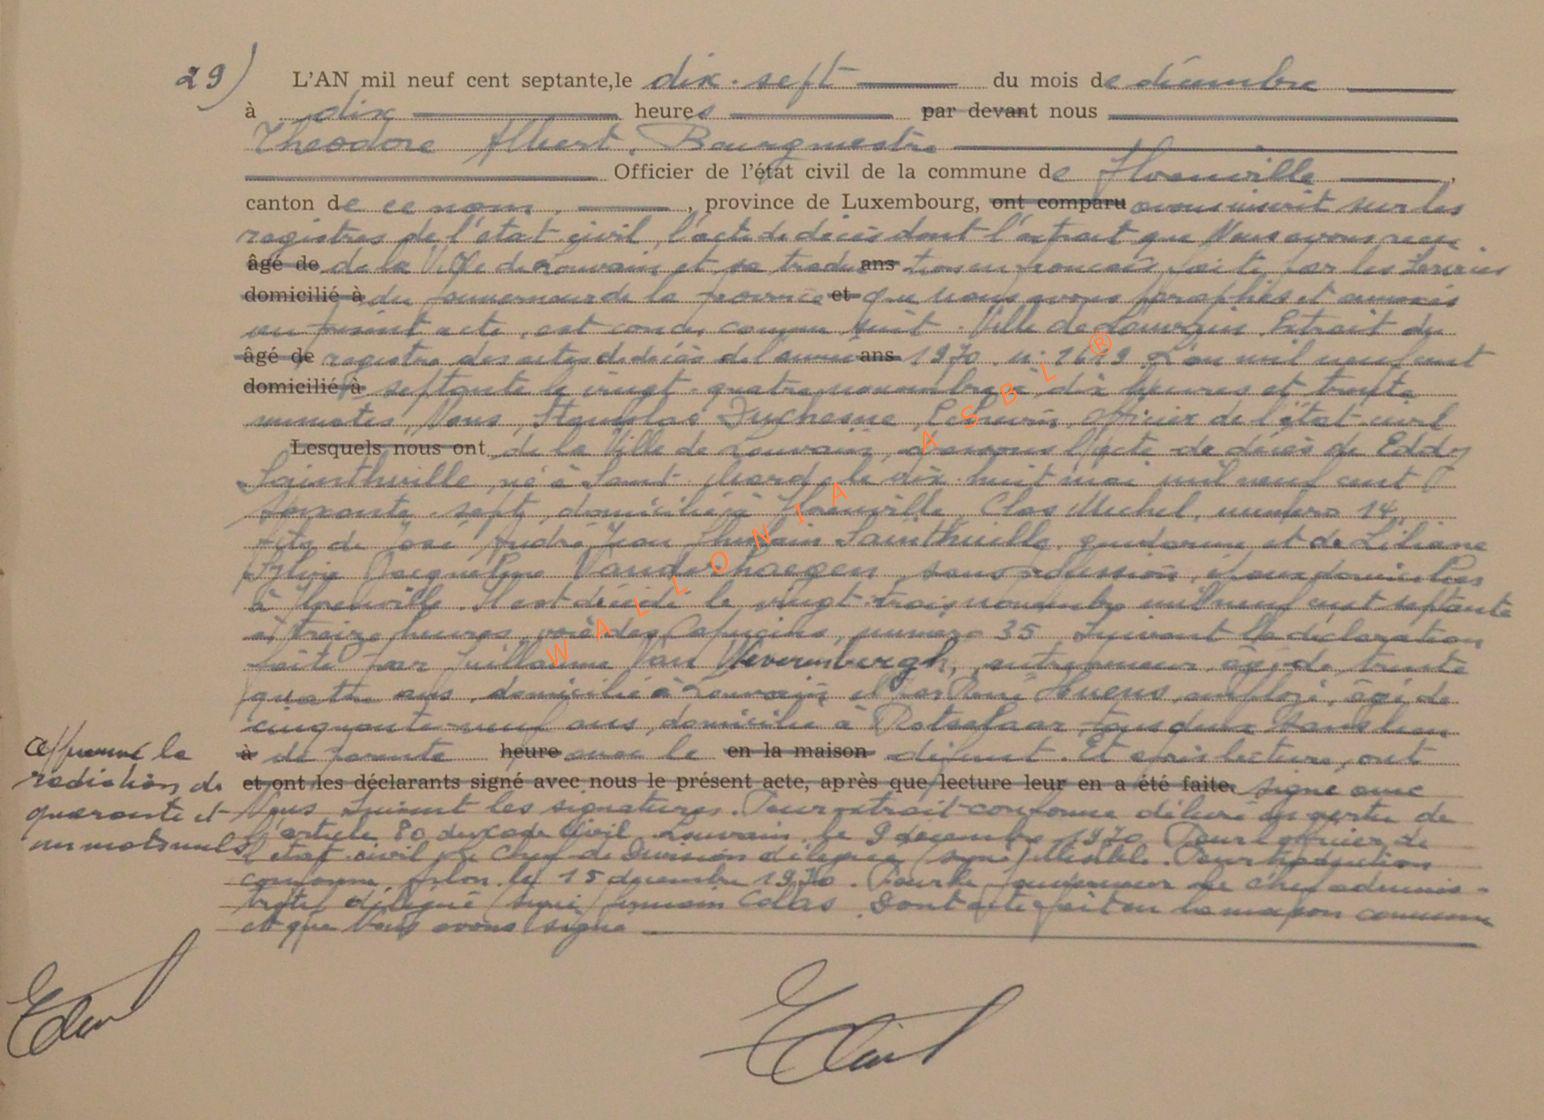 29) L'AN mil neuf cent septante,le dix-sept du mois de décembre
à dix heures par devant nous
Théodore Albert, Bourgmestre
Officier de l'état civil de la commune de Florenville,
canton de ce nom, province de Luxembourg, ont comparu avons inscrit sur les
registres de l'état civil, l'acte de décès dont l'extrait que Nous avons reçu
âgé de de la Ville de Louvain et sa traduc ans tion en français faite par les services
domicilié à du Gouverneur de la province et que nous avons paraphés et annexés
au présent acte, est conçu comme suit. Ville de Louvain Extrait du
âgé de registre des actes de décès de l'année ans 1970 n° 1619 L'an mil neuf cent
domicilié à septante le vingt-quatre novembre à dix heures et trente
minutes, Nous, Stanislas Duchesne, Echevin, officier de l'état-civil
Lesquels nous ont de la Ville de Louvain, dressons l'acte de décès de Eddy
Sainthuille, né à Saint-Mard le dix-huit mai mil neuf cent
soixante-sept, domicilié à Florenville, Clos Michel, numéro 14,
fils de José André Jean Ghislain Sainthuille, gendarme et de Liliane
Sylvie Jacqueline Vanderhaegen, sans profession, époux domiciliés
à Florenville. Il est décédé le vingt-trois novembre mil neuf cent septante
à treize heures, voie des Capucins, numéro 35. Suivant la déclaration
faite par Guillaume Van Wevermbergh, entrepreneur, âgé de trente
quatre ans, domicilié à Louvain et par René Huens, employé, âgé de
cinquante-neuf ans, domicilié à Rotselaar tous deux sans lien
à de parenté heure avec le en la maison défunt. Et après lecture, ont
et ont les déclarants signé avec nous le présent acte, après que lecture leur en a été faite. signé avec
Nous. Suivent les signatures. Pour extrait conforme délivré en vertu de
l'article 80 du code civil. Louvain, le 9 décembre 1970. Pour l'officier de
l'état-civil, le Chef de Division délégué (signé) Pour traduction
conforme, Arlon, le 15 décembre 1970. Pour le Gouverneur le chef adminis-
tratif délégué (signé) Germain Colas. Dont acte fait en la maison commune
et que Nous avons signé
Approuvé la
radiation de
quarante et
un mots nuls
WALLONIA ASBL ®